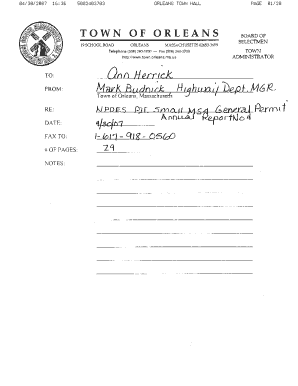 04/30/2007 16:36 5082403703 ORLEANS TOWN HALL PAGE 01/29
TOWN OF ORLEANS
19 SCHOOL ROAD ORLEANS MASSACHUSETTS 02653-3699
http://www.town.orleans.ma.us
BOARD OF
SELECTMEN
TOWN
ADMINISTRATOR
TO: Ann Herrick
FROM: Mark Budnick, Highway Dept. MGR
Town of Orleans, Massachusetts
RE: NPDES PII Small MS4 General Permit
Annual Report No 4
DATE: 4/30/07
FAX TO: 1-617-918-0560
# OF PAGES: 29
NOTES: